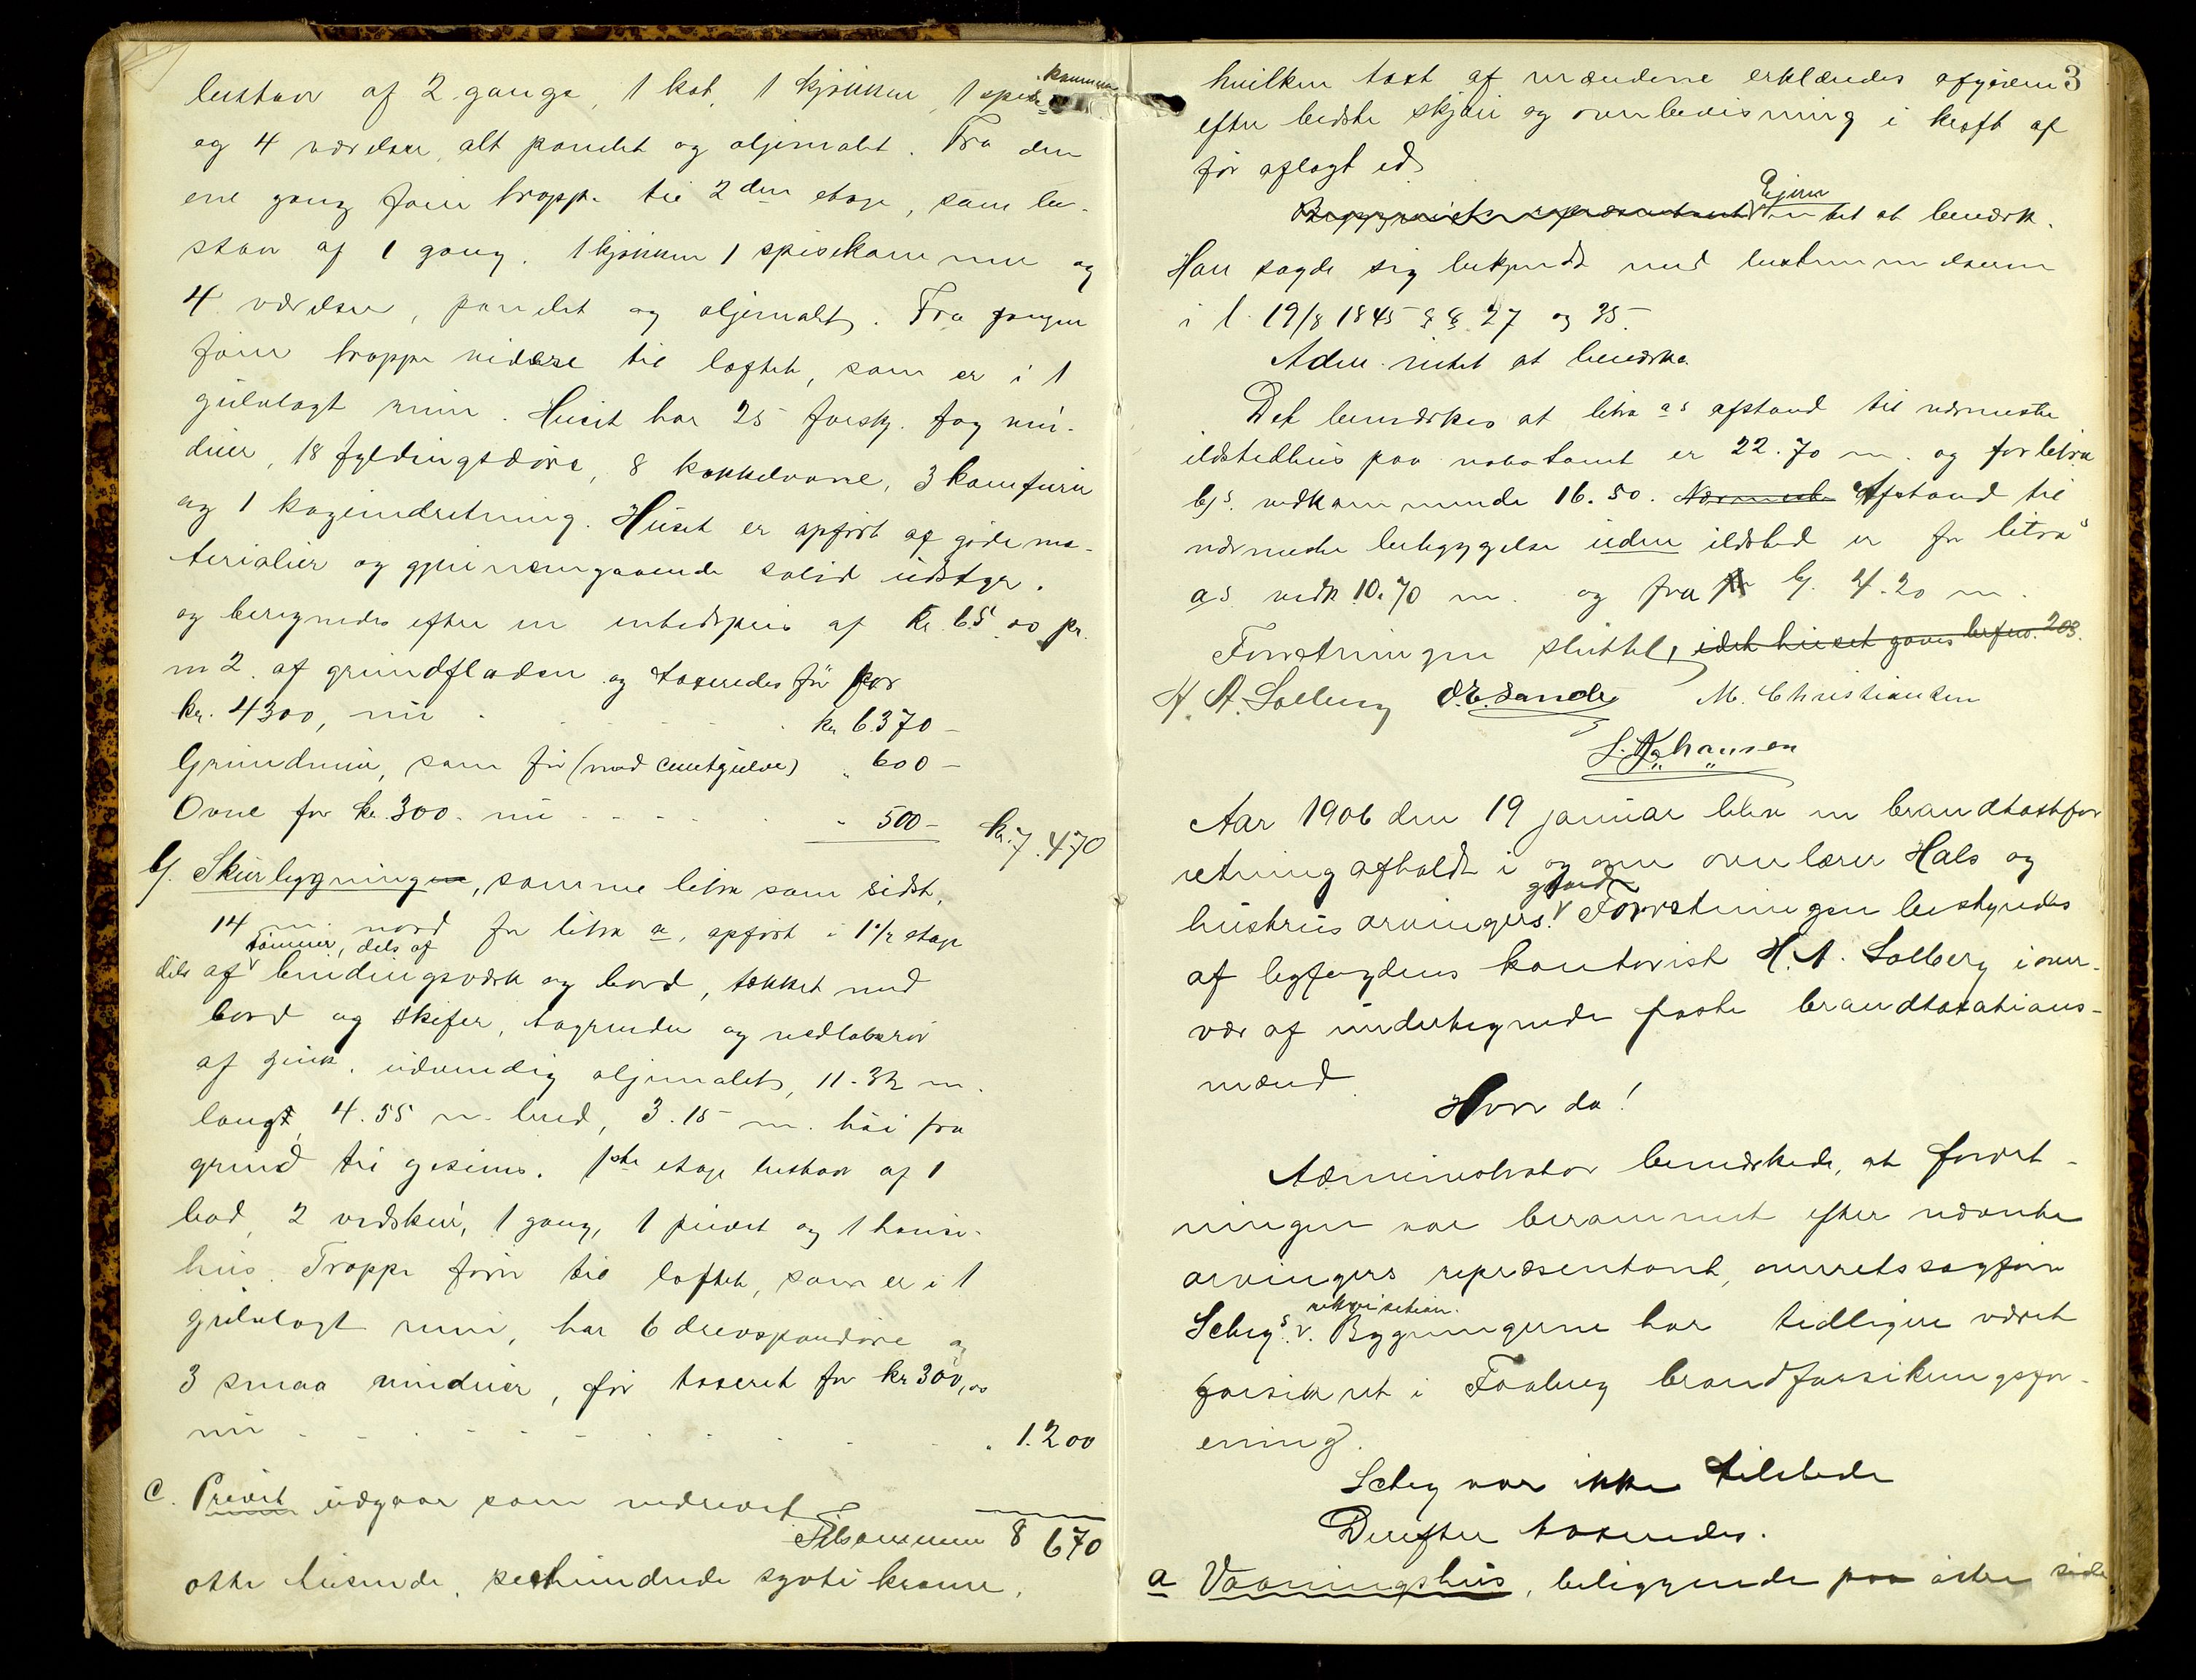 bestaar af 2 gange, 1 kot, 1 kjökken, 1 spisekammer
og 4 værelser, alt panelet og oljemalet. Fra den
ene gang förer trappe til 2den etage, som be-
staar af 1 gang, 1 kjökken 1 spisekammer og
4 værelser, panelet og oljemalet. Fra gangen
förer trappe videre til loftet, som er i 1
gulvlagt rum. Huset har 25 forskj. fag vin-
duer, 18 fyldingsdöre, 8 kakkelovne, 3 komfurer
og 1 kogeindretning. Huset er opfört af gode ma-
terialier og gjennemgaaende solid udstyr,
og beregnedes efter en enhedspris af kr. 65.00 pr.
m 2 af grundfladen og taxeredes för for
kr. 4300, nu kr. 6370 -
Grundmur, som för (med cementgulve) " 600 -
Ovne for kr. 300. nu " 500 - kr. 7.470
b/. Skurbygningen, samme litra som sidst,
14 m. nord for litra a, opfört i 1 1/2 etage
dels af tömmer, dels af bindingsværk og bord, tækket med
bord og skifer, tagrender og nedlöbsrör
af zink, udvendig oljemalet, 11.32 m.
langt, 4.55 m. bred, 3.15 m. höi fra
grund til gesims. 1ste etage bestaar af 1
bod, 2 vedskur, 1 gang, 1 privet og 1 hönse-
hus. Trappe förer til loftet, som er i 1
gulvlagt rum, har 6 drevspandöre og
3 smaa vinduer, för taxeret for kr 300,00
nu " 1.200
c. Privet udgaar som nedrevet
Tilsammen 8 670
otte tusende, sexhundrede sytti kroner,
3
hvilken taxt af mændene erklæredes afgiven
efter bedste skjön og overbevisning i kraft af
för aflagt ed.
Ejeren intet at bemærk.
Han sagde sig bekjendt med bestemmelserne
i l. 19/8 1845 §§ 27 og 35.
Adm. intet at bemærke.
Det bemærkes at litra as afstand til nærmeste
ildstedhus paa nabotomt er 22.70 m. og for litra
b/s. vedkommende 16.50. Nærmeste Afstand til
nærmeste bebyggelse uden ildsted er for litra
as vedk. 10.70 m. og fra b/. 4.20 m.
Forretningen sluttet, idet huset gaves brfno. 203.
H. A. Solberg O. E. Sande M. Christiansen
L. Johansen
Aar 1906 den 19 januar blev en brandtaxtfor
retning afholdt i og over overlærer Hals og
hustrus arvingers gaard. Forretningen bestyredes
af byfogdens kontorist H. A. Solberg i over-
vær af undertegnede faste brandtaxations-
mænd.
Hvor da!
Administrator bemærkede, at forret-
ningen var berammet efter nævnte
arvingers repræsentant, overretssagförer
Schys rekvisition. Bygningerne har tidligere været
forsikret i Faaberg brandforsikringsfor-
ening.
Schy var ikke tilstede
Derefter taxeredes.
a Vaaningshus, beliggende paa östre side